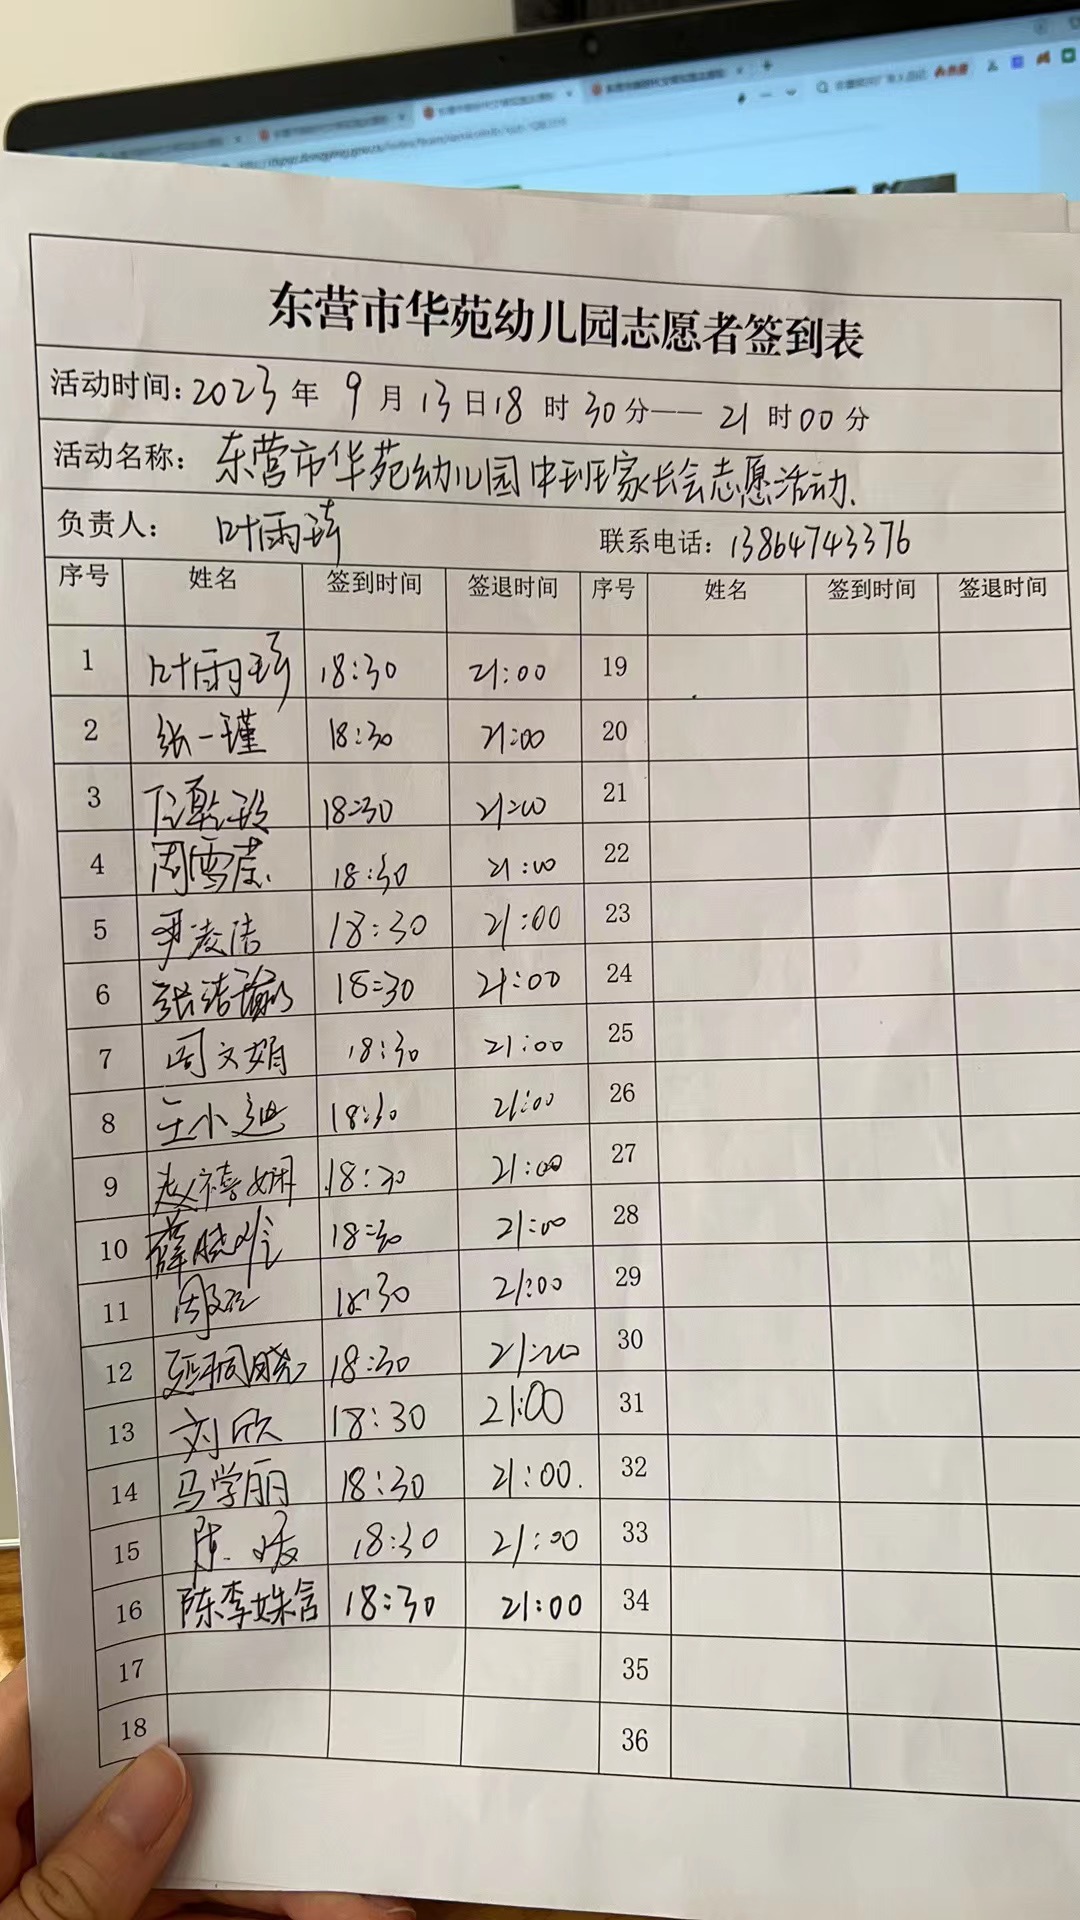 东营市华苑幼儿园志愿者签到表
活动时间:2023年 9月13日18时30分——21时00分
活动名称:东营市华苑幼儿园中班家长会志愿活动.
负责人: 叶雨琦 联系电话:13864743376
序号 姓名 签到时间 签退时间 序号 姓名 签到时间 签退时间
1 叶雨琦 18:30 21:00 19
2 张一瑾 18:30 21:00 20
3 18:30 21:00 21
4 周雪 18:30 21:00 22
5 尹凌洁 18:30 21:00 23
6 张洁瑜 18:30 21:00 24
7 周文娟 18:30 21:00 25
8 王小迪 18:30 21:00 26
9 赵禧娴 18:30 21:00 27
10 薛晓 18:30 21:00 28
11 18:30 21:00 29
12 延桐晓 18:30 21:00 30
13 刘欣 18:30 21:00 31
14 马学丽 18:30 21:00. 32
15 陈媛 18:30 21:00 33
16 陈李姝含 18:30 21:00 34
17 35
18 36